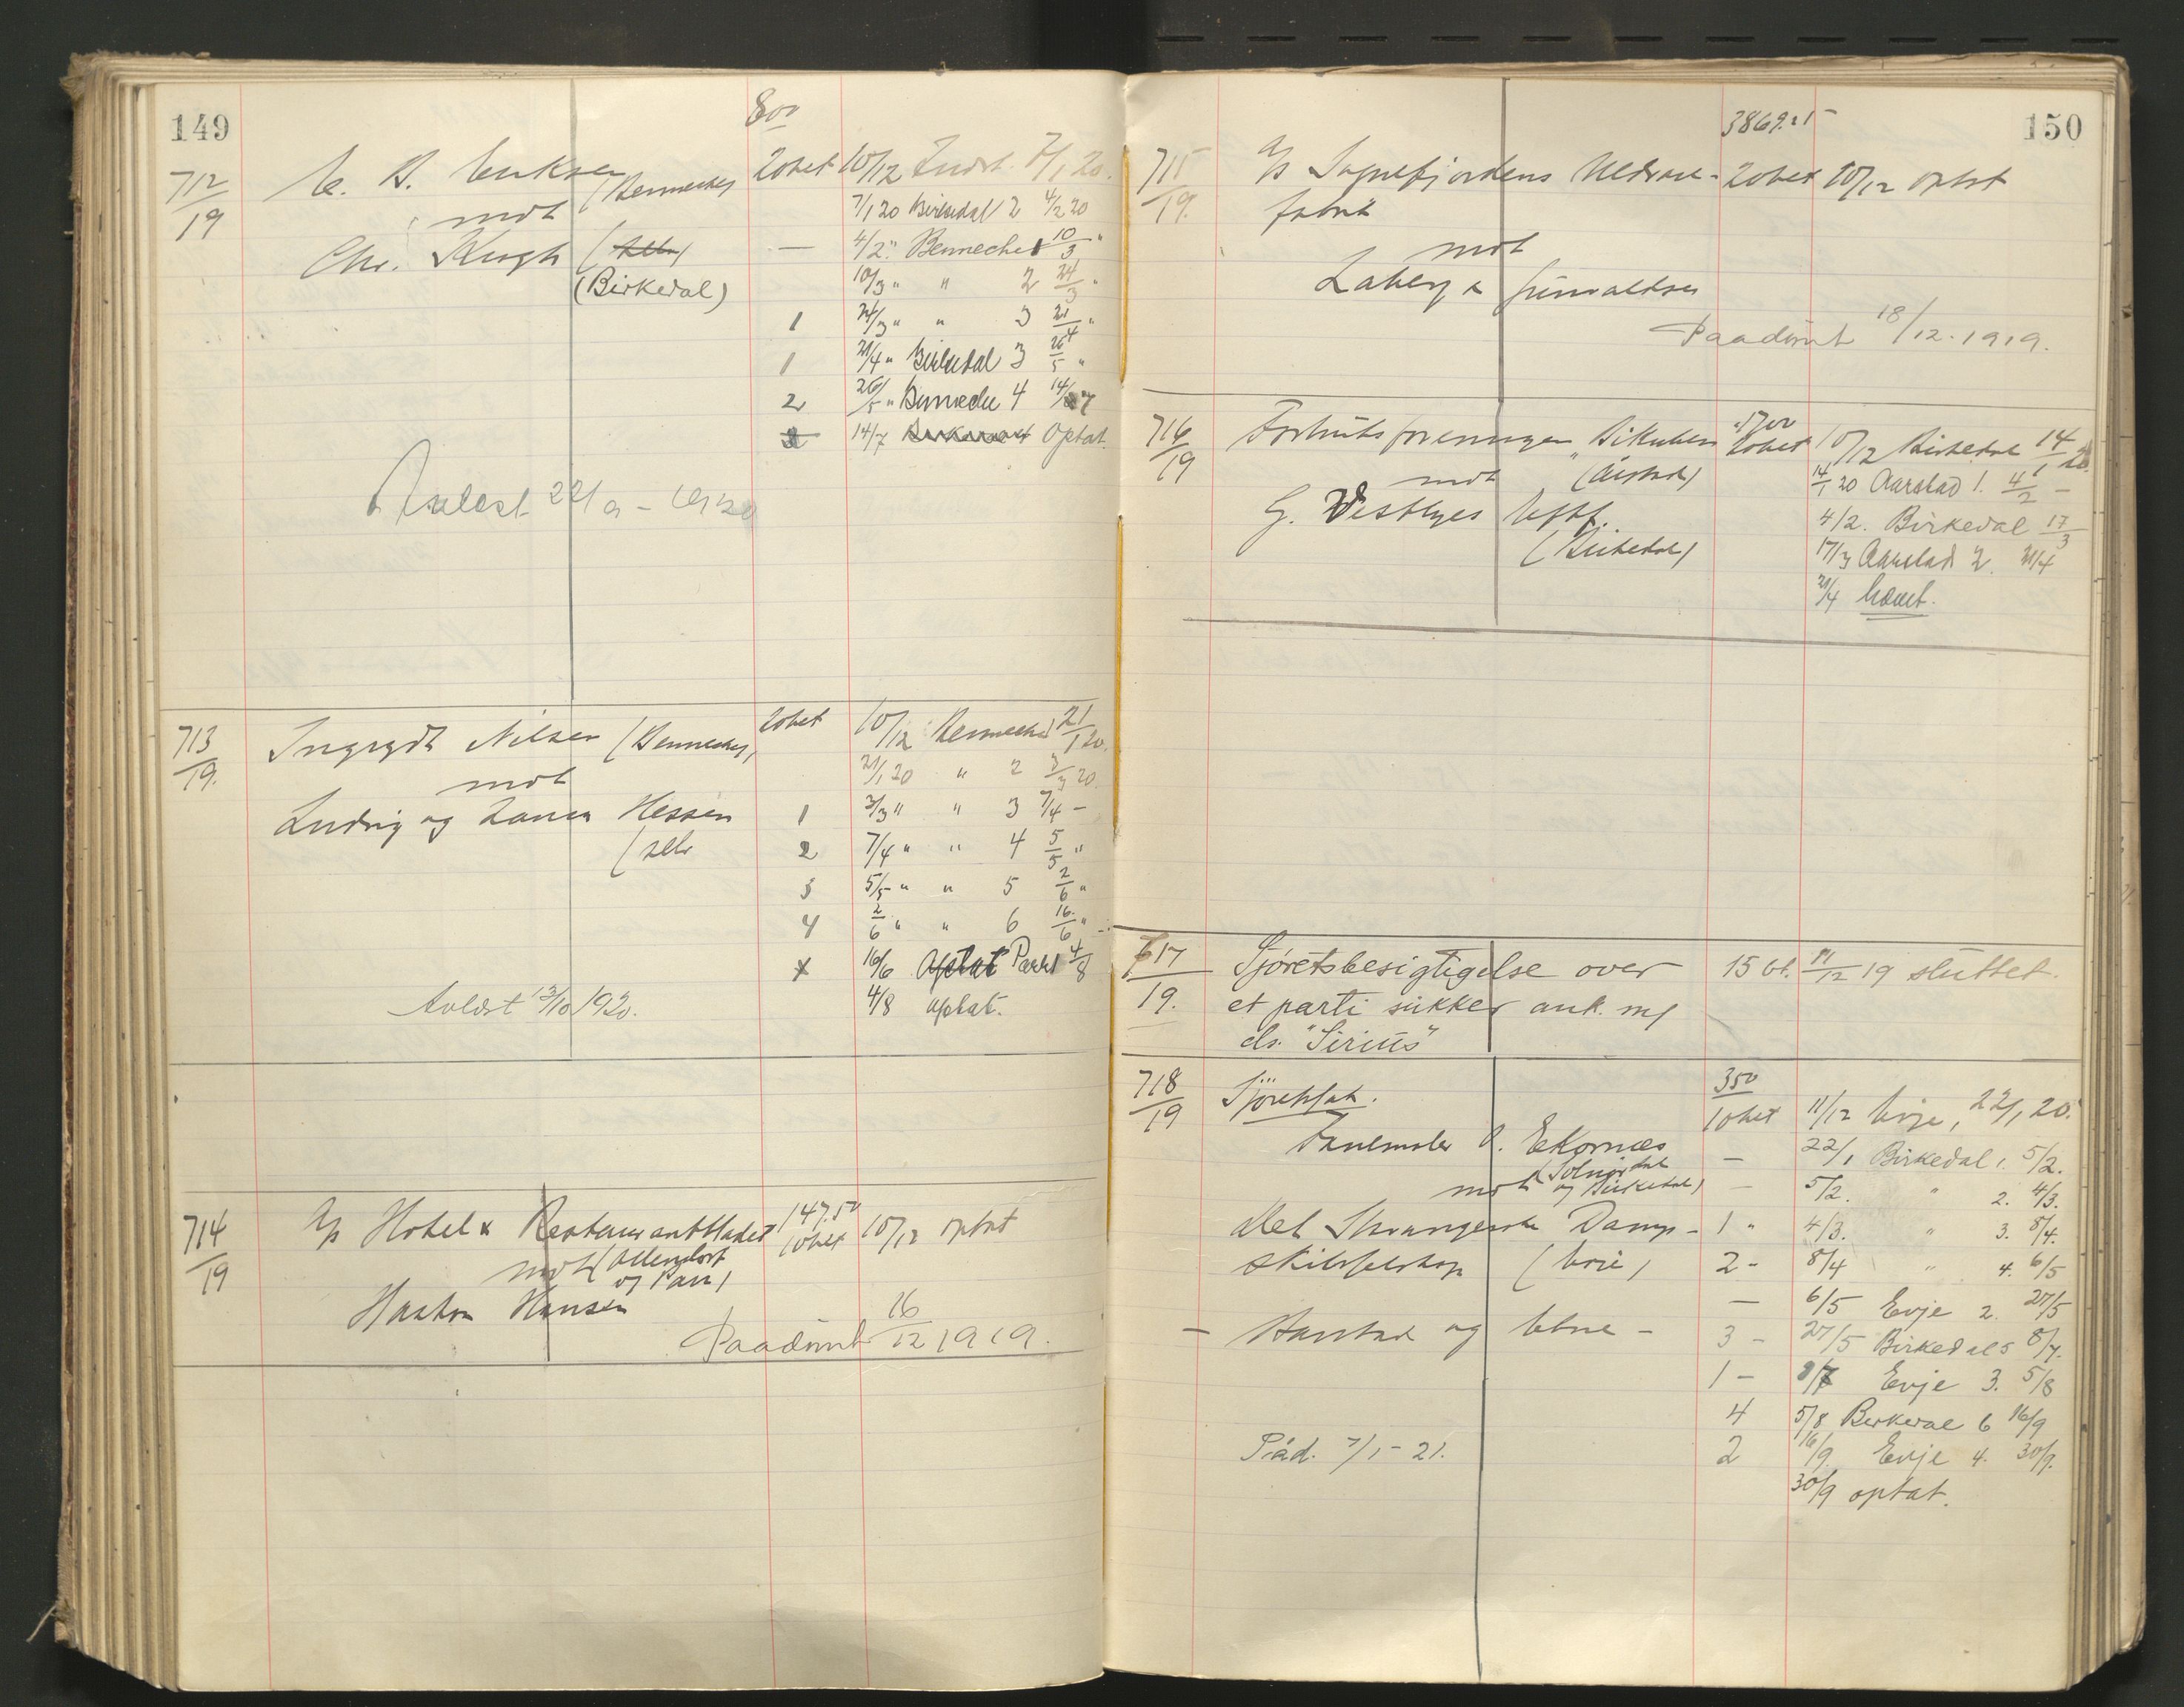 149
800
712/19
C. B. Eriksen (Benneches
20 bet 10/12 Indst. 7/1 20.
mot
7/1 20 Birkedal 2 4/2 20
Chr. Krogh
— 4/2 " Benneche 1 10/3 "
(Birkedal)
10/3 " " 2 24/3 "
1 24/3 " " 3 21/4 "
1 21/4 " Birkedal 3 26/5 "
2 26/5 " Benneche 4 14/7
14/7 Optat.
1920
713/19.
Ingrydt Nilsen (Benneches)
20 bet 10/12 Benneche 21/1 20.
mot
21/1 20 " 2 3/3 20.
Ludvig og Laura Hessen
1 3/3 " " 3 7/4 —
(selv
2 7/4 " " 4 5/5 "
3 5/5 " " 5 2/6 "
4 2/6 " " 6 16/6 "
16/6 Optat Parr 4/8
Avldst 13/10 1920.
4/8 optat.
714/19
A/s Hotel & Restaurantbladet
147.50
10 bet 10/12 optat
mot (Ollendorf og Parr)
Haakon Hansen
Paadømt 16/12 1919.
150
3869.15
715/19.
A/s Sognefjordens Uldvare-
20 bet 10/12 optat
fabrik
mot
Laberg & Grinvaldsen
Paadømt 18/12.1919.
716/19
Forbruksforeningen "Bikuben
1700
20 bet 10/12 Birkedal 14/1 20.
mot (Årstad)
14/1 20 Aarstad 1. 4/2 —
G. Vestbyes Eftf.
4/2. Birkedal 17/3
(Birkedal)
17/3 Aarstad 2. 21/4
21/4 hævet.
717/19.
Sjøretsbesigtigelse over
15 bt. 11/12 19 sluttet.
et parti sukker ank. m/
ds. "Sirius"
718/19
Sjøretssak.
350
10 bet 11/12 Evje, 22/1 20.
O. Ekornæs
— 22/1 Birkedal 1. 5/2.
mot (Solnørdal og Birkedal)
— 5/2. " 2. 4/3.
Det Stavangerske Damp-
1 " 4/3. " 3. 8/4.
skibsselskap (Evje)
2 - 8/4 " 4. 6/5
— 6/5 Evje 2. 27/5
— Aarstad og Evje —
3 - 27/5 Birkedal 5 8/7.
1 - 8/7 Evje 3. 5/8
4 5/8 Birkedal 6 16/9
Påd. 7/1 - 21.
2 16/9. Evje 4. 30/9.
30/9 optat.